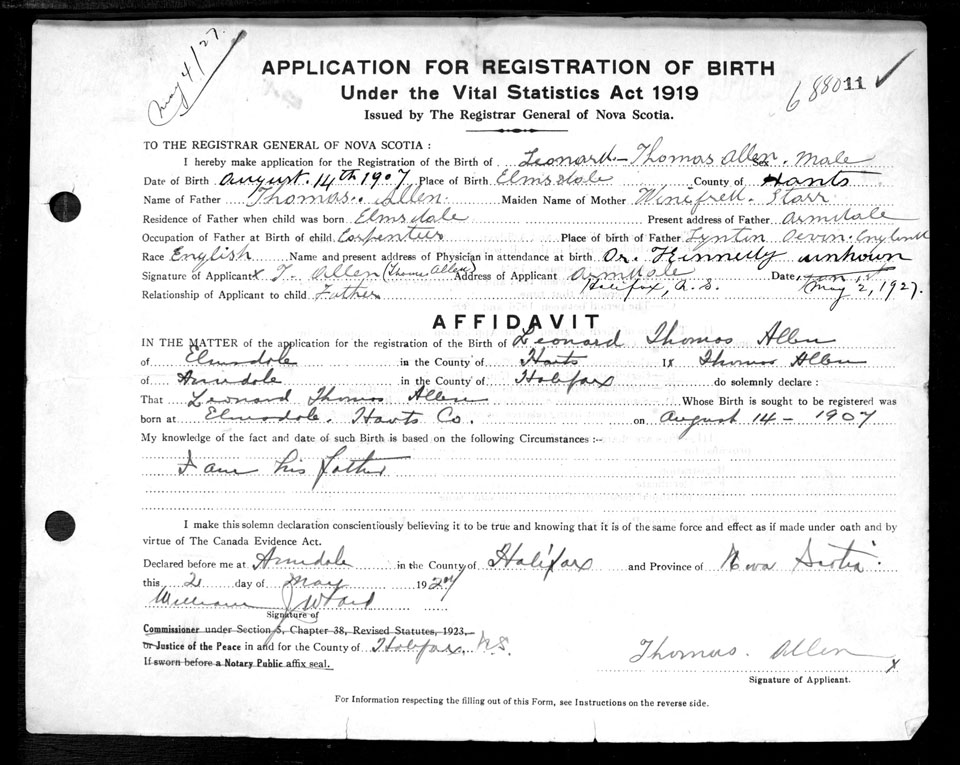 May 4/27.
APPLICATION FOR REGISTRATION OF BIRTH
Under the Vital Statistics Act 1919
68801 11 ✓
Issued by The Registrar General of Nova Scotia.
TO THE REGISTRAR GENERAL OF NOVA SCOTIA :
I hereby make application for the Registration of the Birth of Leonard - Thomas Allen. Sex Male
Date of Birth August. 14th 1907 Place of Birth Elmsdale County of Hants
Name of Father Thomas. Allen Maiden Name of Mother Winifred. Starr
Residence of Father when child was born Elmsdale Present address of Father Armdale
Occupation of Father at Birth of child Carpenter Place of birth of Father Devon. England
Race English Name and present address of Physician in attendance at birth Dr. Kennedy unknown
Signature of Applicant x T. Allen (Thomas Allen) Address of Applicant Armdale Date
Relationship of Applicant to child Father Halifax, N.S. May 2, 1927.
AFFIDAVIT
IN THE MATTER of the application for the registration of the Birth of Leonard Thomas Allen
of Elmsdale in the County of Hants I x Thomas Allen
of Armdale in the County of Halifax do solemnly declare :
That Leonard Thomas Allen Whose Birth is sought to be registered was
born at Elmsdale. Hants Co. on August 14 - 1907
My knowledge of the fact and date of such Birth is based on the following Circumstances :-
I am his father
I make this solemn declaration conscientiously believing it to be true and knowing that it is of the same force and effect as if made under oath and by
virtue of The Canada Evidence Act.
Declared before me at Armdale in the County of Halifax and Province of Nova Scotia.
this 2 day of May 1927
William J Ward
Signature of
Commissioner under Section 5, Chapter 38, Revised Statutes, 1923,
or Justice of the Peace in and for the County of Halifax, N.S.
If sworn before a Notary Public affix seal.
Thomas. Allen x
Signature of Applicant.
For Information respecting the filling out of this Form, see Instructions on the reverse side.